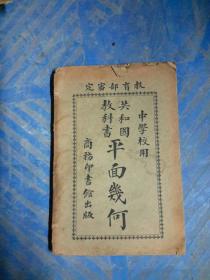 教育部審定
中學校用
共和國
教科書
平面幾何
商務印書館出版